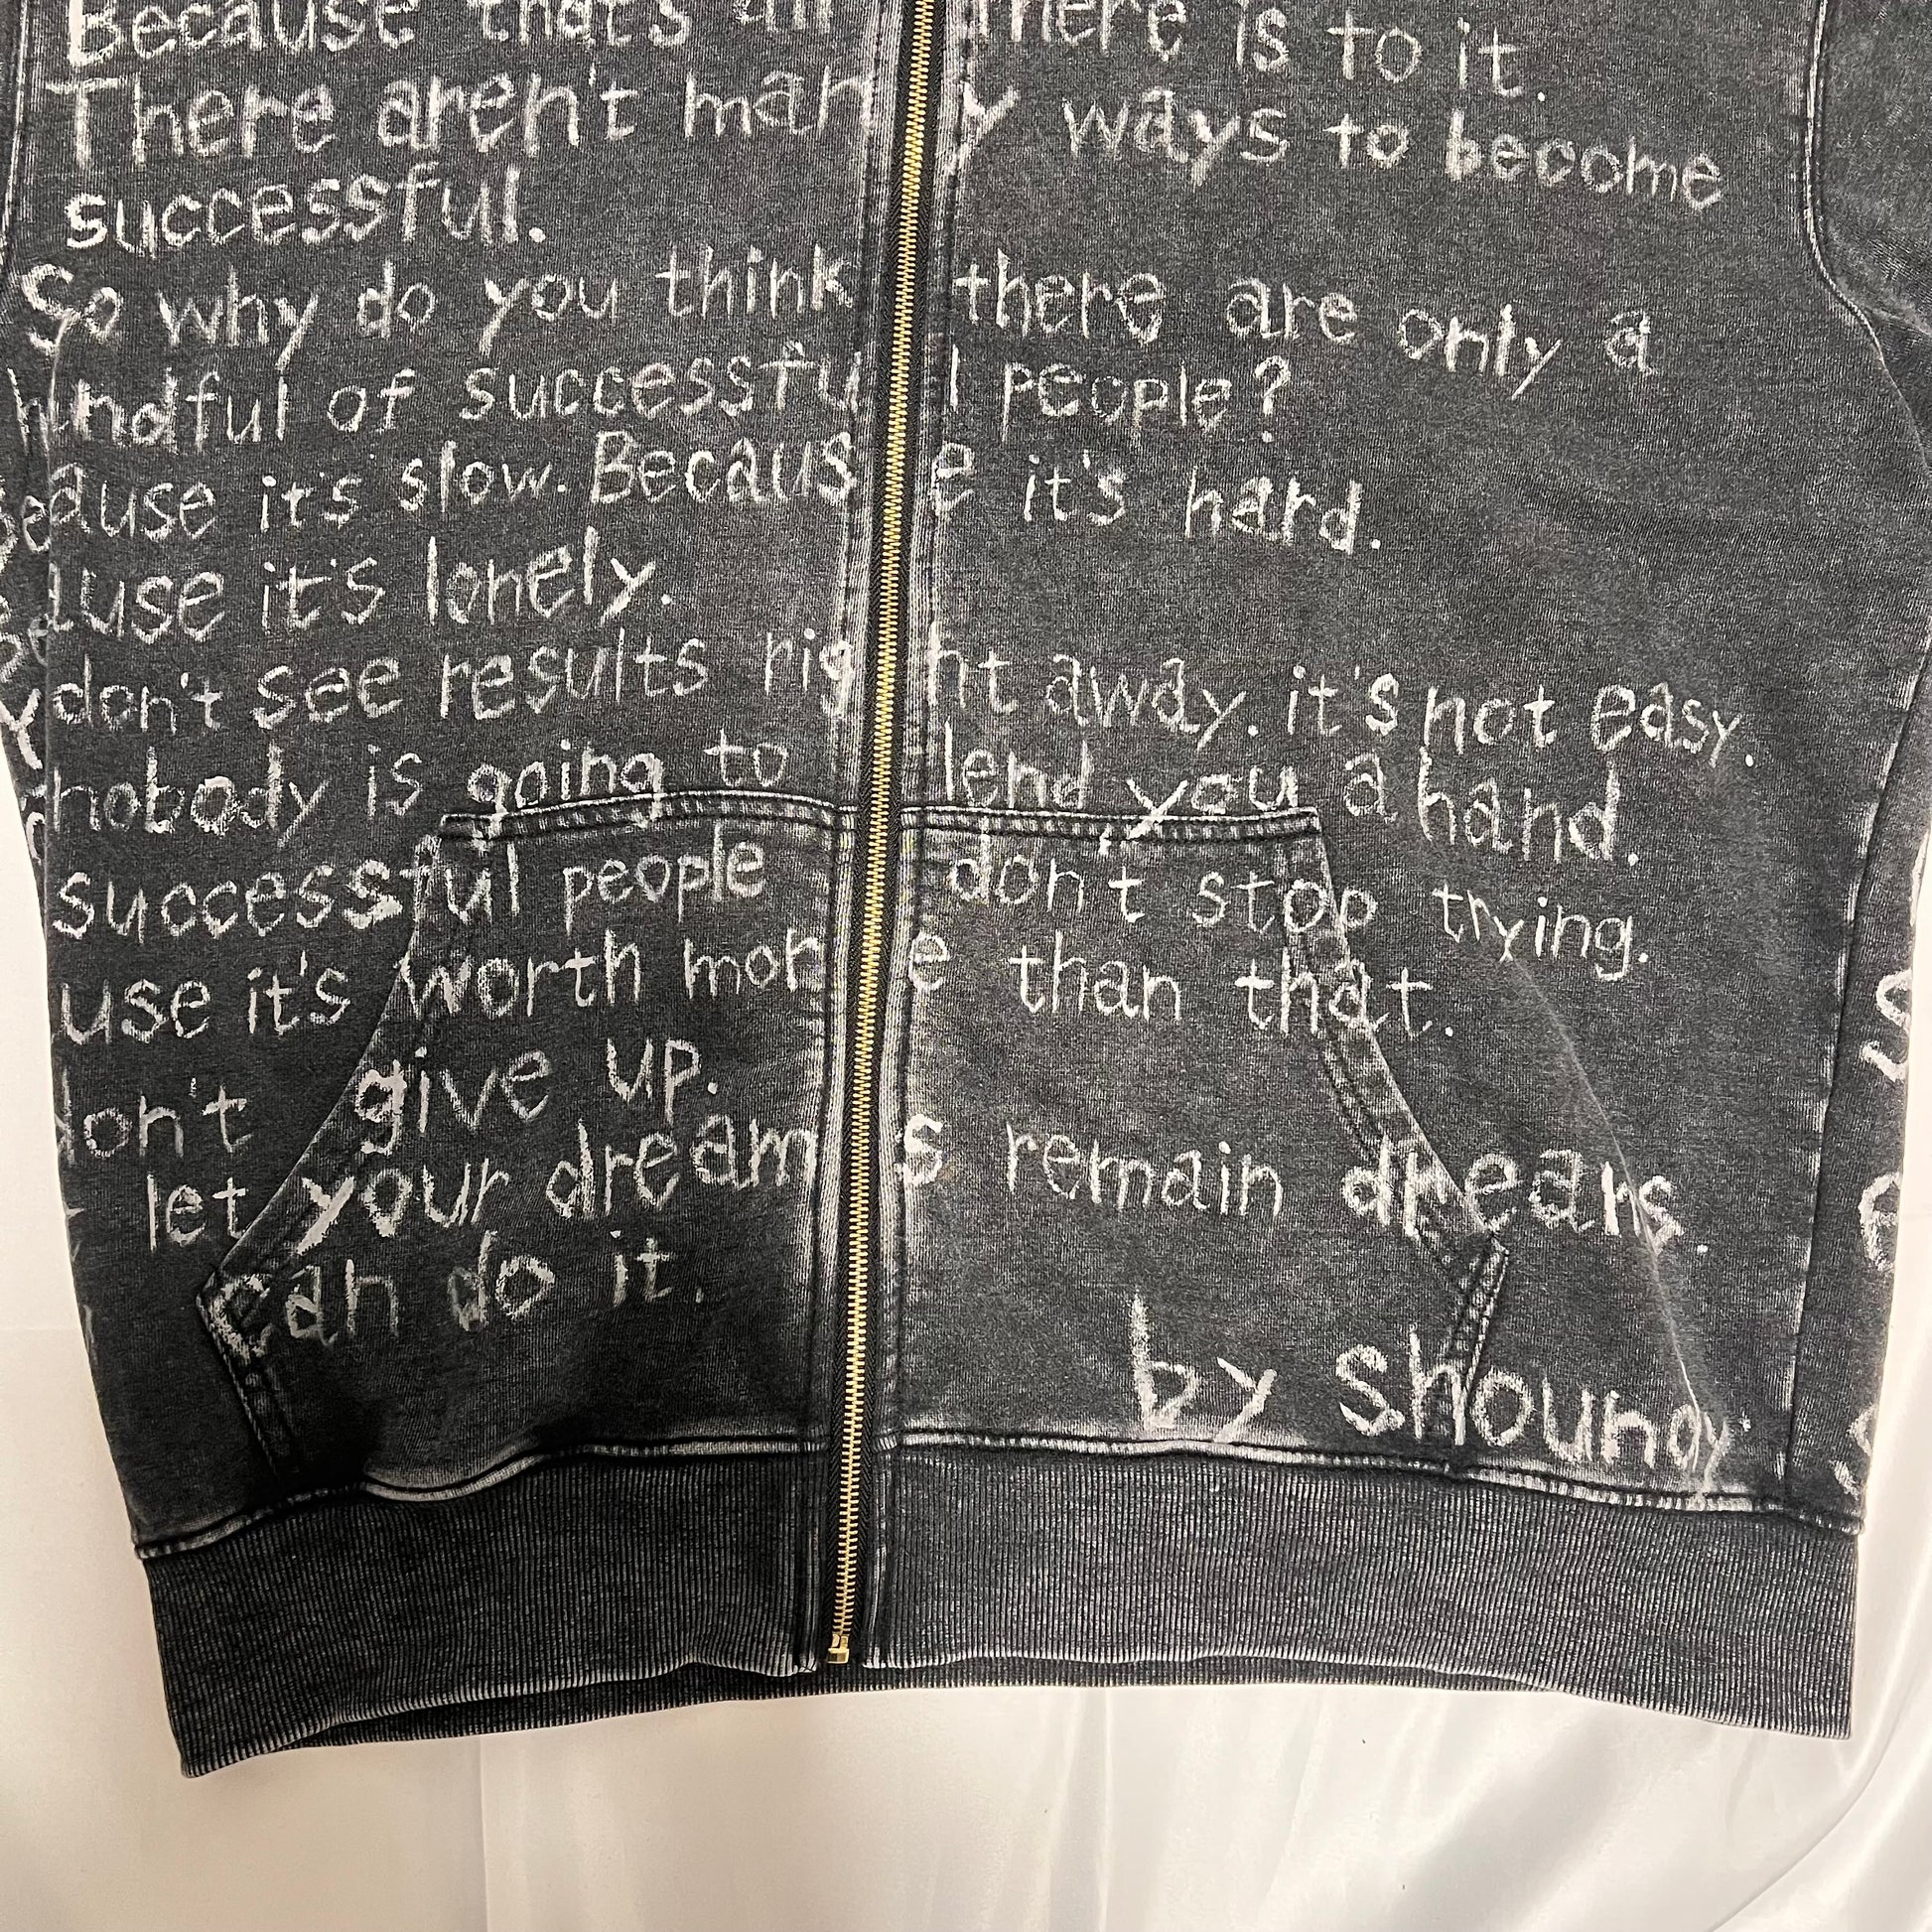 Because that's all there is to it.
There aren't many ways to become
successful.
So why do you think there are only a
handful of successful people?
Because it's slow. Because it's hard.
Because it's lonely.
Y don't see results right away. it's not easy.
nobody is going to lend you a hand.
successful people don't stop trying.
use it's worth more than that.
don't give up.
let your dreams remain dreams.
can do it.
by shoundy.